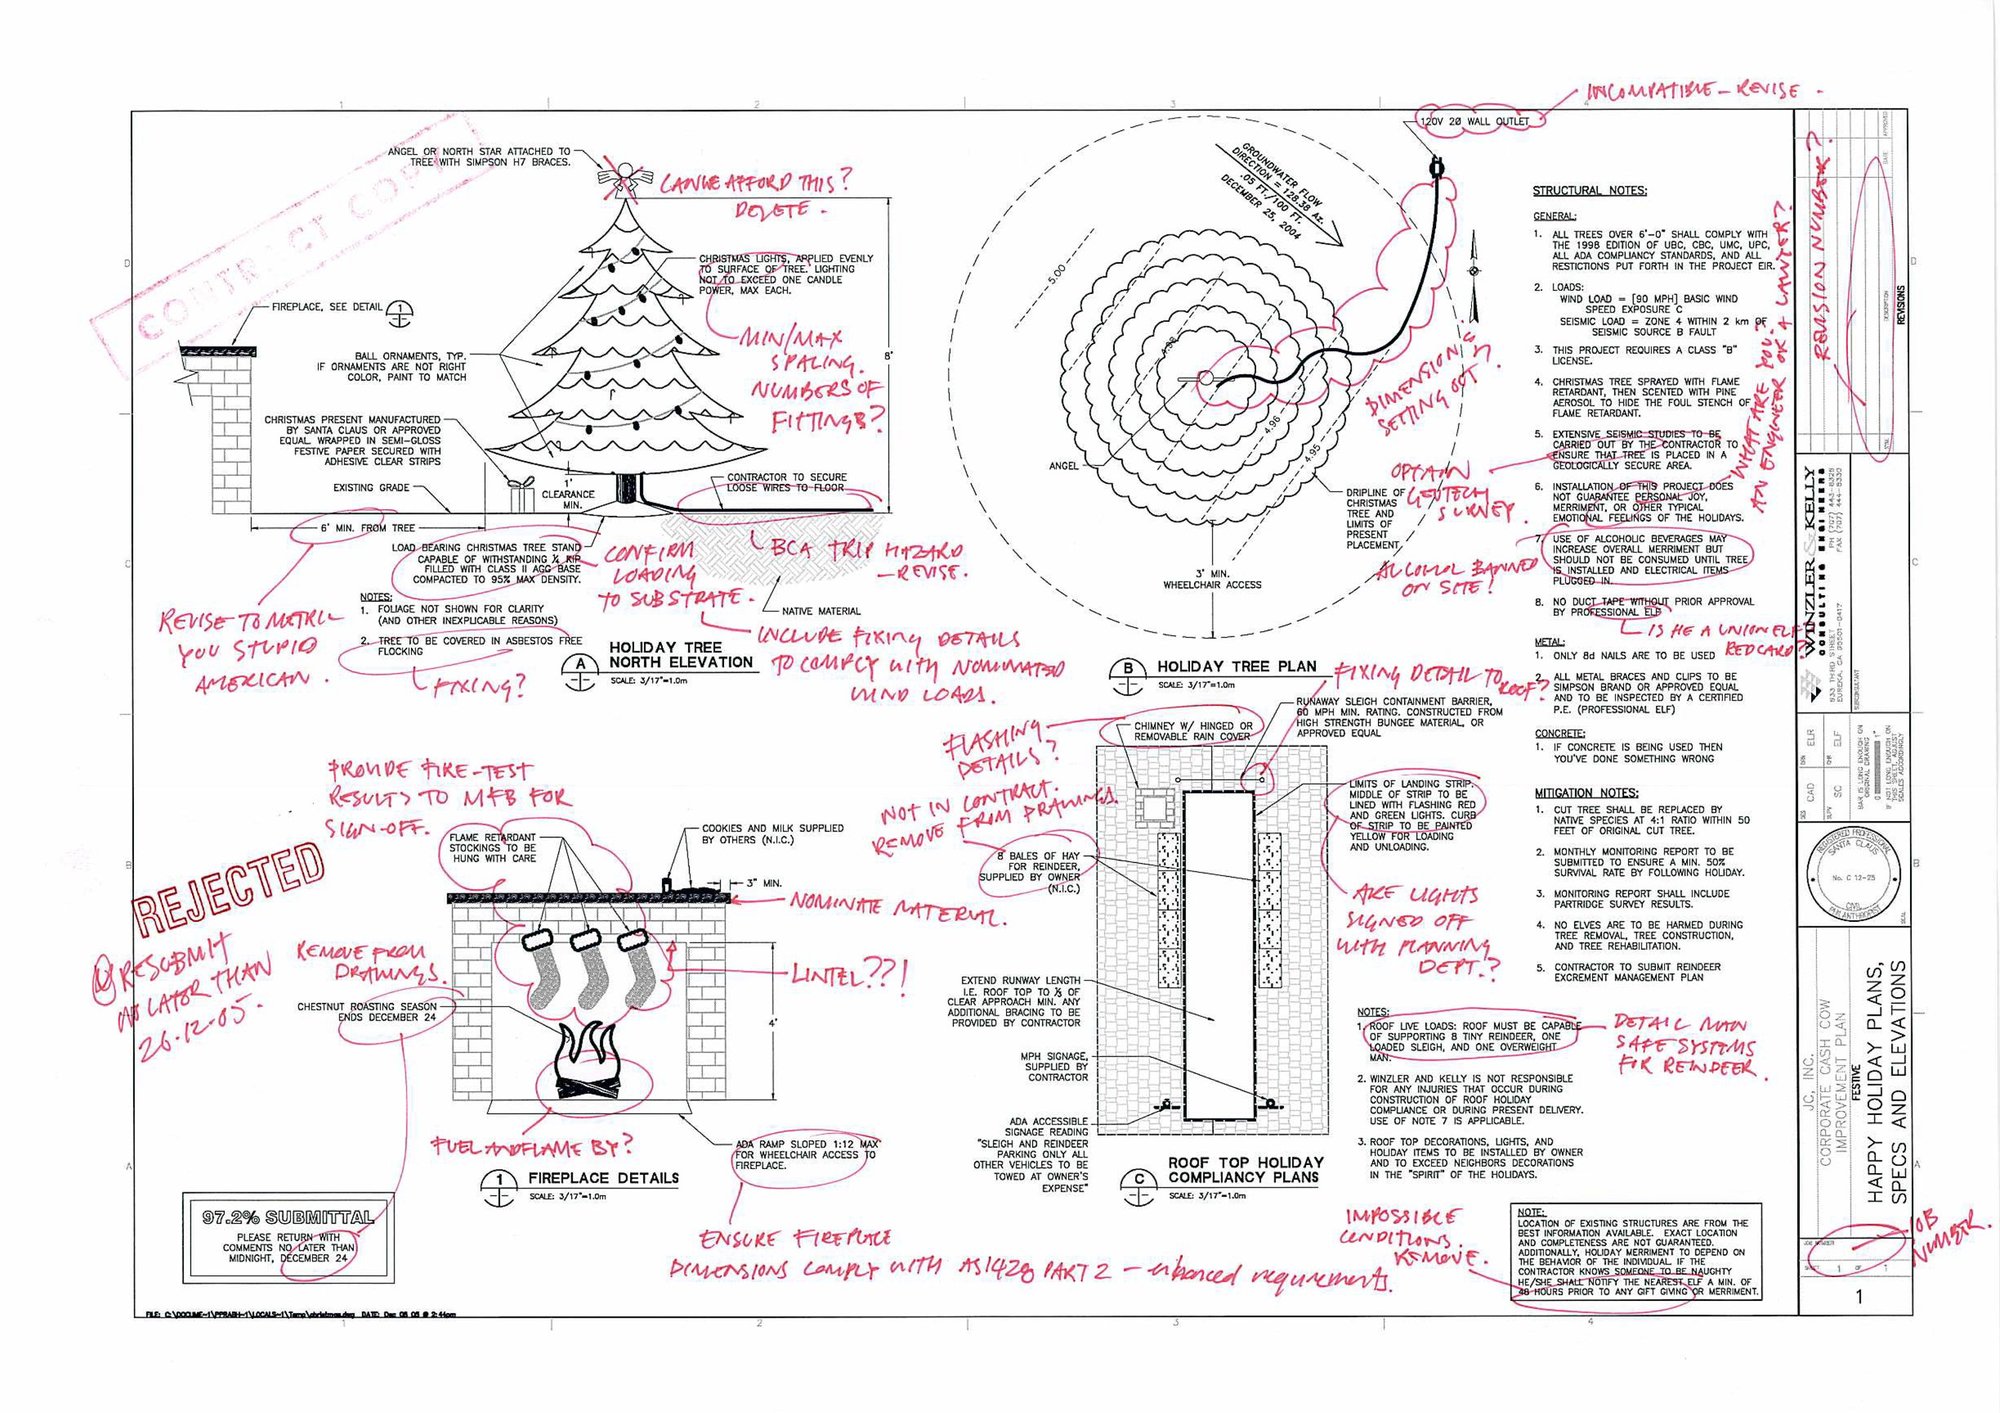 INCOMPATIBLE - REVISE.
120V 20 WALL OUTLET
CONTRACT COPY
ANGEL OR NORTH STAR ATTACHED TO
TREE WITH SIMPSON H7 BRACES.
CAN WE AFFORD THIS?
DELETE.
CHRISTMAS LIGHTS, APPLIED EVENLY
TO SURFACE OF TREE. LIGHTING
NOT TO EXCEED ONE CANDLE
POWER, MAX EACH.
MIN/MAX
SPACING.
NUMBERS OF
FITTINGS?
FIREPLACE, SEE DETAIL
1
8'
BALL ORNAMENTS, TYP.
IF ORNAMENTS ARE NOT RIGHT
COLOR, PAINT TO MATCH
CHRISTMAS PRESENT MANUFACTURED
BY SANTA CLAUS OR APPROVED
EQUAL WRAPPED IN SEMI-GLOSS
FESTIVE PAPER SECURED WITH
ADHESIVE CLEAR STRIPS
EXISTING GRADE
1'
CLEARANCE
MIN.
CONTRACTOR TO SECURE
LOOSE WIRES TO FLOOR
6' MIN. FROM TREE
LOAD BEARING CHRISTMAS TREE STAND
CAPABLE OF WITHSTANDING ¼ KIP
FILLED WITH CLASS II AGG BASE
COMPACTED TO 95% MAX DENSITY.
CONFIRM
LOADING
TO SUBSTRATE.
BCA TRIP HAZARD
- REVISE.
NATIVE MATERIAL
REVISE TO METRIC
YOU STUPID
AMERICAN.
NOTES:
1. FOLIAGE NOT SHOWN FOR CLARITY
(AND OTHER INEXPLICABLE REASONS)
2. TREE TO BE COVERED IN ASBESTOS FREE
FLOCKING
FIXING?
INCLUDE FIXING DETAILS
TO COMPLY WITH NOMINATED
WIND LOADS.
A
HOLIDAY TREE
NORTH ELEVATION
SCALE: 3/17"=1.0m
GROUNDWATER FLOW
DIRECTION = 128.38 Az.
.05 FT./100 FT.
DECEMBER 25, 2004
5.00
4.98
4.96
4.95
DIMENSION &
SETTING OUT?
ANGEL
DRIPLINE OF
CHRISTMAS
TREE AND
LIMITS OF
PRESENT
PLACEMENT
3' MIN.
WHEELCHAIR ACCESS
B
HOLIDAY TREE PLAN
SCALE: 3/17"=1.0m
STRUCTURAL NOTES:
GENERAL:
1. ALL TREES OVER 6'-0" SHALL COMPLY WITH
THE 1998 EDITION OF UBC, CBC, UMC, UPC,
ALL ADA COMPLIANCY STANDARDS, AND ALL
RESTICTIONS PUT FORTH IN THE PROJECT EIR.
2. LOADS:
WIND LOAD = [90 MPH] BASIC WIND
SPEED EXPOSURE C
SEISMIC LOAD = ZONE 4 WITHIN 2 km OF
SEISMIC SOURCE B FAULT
3. THIS PROJECT REQUIRES A CLASS "B"
LICENSE.
4. CHRISTMAS TREE SPRAYED WITH FLAME
RETARDANT, THEN SCENTED WITH PINE
AEROSOL TO HIDE THE FOUL STENCH OF
FLAME RETARDANT.
5. EXTENSIVE SEISMIC STUDIES TO BE
CARRIED OUT BY THE CONTRACTOR TO
ENSURE THAT TREE IS PLACED IN A
GEOLOGICALLY SECURE AREA.
OBTAIN
GEOTECH
SURVEY.
6. INSTALLATION OF THIS PROJECT DOES
NOT GUARANTEE PERSONAL JOY,
MERRIMENT, OR OTHER TYPICAL
EMOTIONAL FEELINGS OF THE HOLIDAYS.
WHAT ARE YOU?
AN ENGINEER OR A LAWYER?
7. USE OF ALCOHOLIC BEVERAGES MAY
INCREASE OVERALL MERRIMENT BUT
SHOULD NOT BE CONSUMED UNTIL TREE
IS INSTALLED AND ELECTRICAL ITEMS
PLUGGED IN.
ALCOHOL BANNED
ON SITE!
8. NO DUCT TAPE WITHOUT PRIOR APPROVAL
BY PROFESSIONAL ELF
IS HE A UNION ELF?
RED CARD?
METAL:
1. ONLY 8d NAILS ARE TO BE USED
2. ALL METAL BRACES AND CLIPS TO BE
SIMPSON BRAND OR APPROVED EQUAL
AND TO BE INSPECTED BY A CERTIFIED
P.E. (PROFESSIONAL ELF)
CONCRETE:
1. IF CONCRETE IS BEING USED THEN
YOU'VE DONE SOMETHING WRONG
MITIGATION NOTES:
1. CUT TREE SHALL BE REPLACED BY
NATIVE SPECIES AT 4:1 RATIO WITHIN 50
FEET OF ORIGINAL CUT TREE.
2. MONTHLY MONITORING REPORT TO BE
SUBMITTED TO ENSURE A MIN. 50%
SURVIVAL RATE BY FOLLOWING HOLIDAY.
3. MONITORING REPORT SHALL INCLUDE
PARTRIDGE SURVEY RESULTS.
4. NO ELVES ARE TO BE HARMED DURING
TREE REMOVAL, TREE CONSTRUCTION,
AND TREE REHABILITATION.
5. CONTRACTOR TO SUBMIT REINDEER
EXCREMENT MANAGEMENT PLAN
PROVIDE FIRE-TEST
RESULTS TO MFB FOR
SIGN-OFF.
FLAME RETARDANT
STOCKINGS TO BE
HUNG WITH CARE
COOKIES AND MILK SUPPLIED
BY OTHERS (N.I.C.)
3" MIN.
NOMINATE MATERIAL.
REJECTED
RESUBMIT
NO LATER THAN
26.12.05.
REMOVE FROM
DRAWINGS.
CHESTNUT ROASTING SEASON
ENDS DECEMBER 24
LINTEL??!
4'
FUEL AND FLAME BY?
ADA RAMP SLOPED 1:12 MAX
FOR WHEELCHAIR ACCESS TO
FIREPLACE.
1
FIREPLACE DETAILS
SCALE: 3/17"=1.0m
ENSURE FIREPLACE
DIMENSIONS COMPLY WITH AS1428 PART 2 - enhanced requirements.
97.2% SUBMITTAL
PLEASE RETURN WITH
COMMENTS NO LATER THAN
MIDNIGHT, DECEMBER 24
FLASHING
DETAILS?
CHIMNEY W/ HINGED OR
REMOVABLE RAIN COVER
FIXING DETAIL TO
ROOF?
RUNAWAY SLEIGH CONTAINMENT BARRIER,
60 MPH MIN. RATING. CONSTRUCTED FROM
HIGH STRENGTH BUNGEE MATERIAL, OR
APPROVED EQUAL
NOT IN CONTRACT.
REMOVE FROM DRAWINGS.
8 BALES OF HAY
FOR REINDEER,
SUPPLIED BY OWNER
(N.I.C.)
LIMITS OF LANDING STRIP.
MIDDLE OF STRIP TO BE
LINED WITH FLASHING RED
AND GREEN LIGHTS. CURB
OF STRIP TO BE PAINTED
YELLOW FOR LOADING
AND UNLOADING.
ARE LIGHTS
SIGNED OFF
WITH PLANNING
DEPT.?
EXTEND RUNWAY LENGTH
I.E. ROOF TOP TO ⅓ OF
CLEAR APPROACH MIN. ANY
ADDITIONAL BRACING TO BE
PROVIDED BY CONTRACTOR
MPH SIGNAGE,
SUPPLIED BY
CONTRACTOR
ADA ACCESSIBLE
SIGNAGE READING
"SLEIGH AND REINDEER
PARKING ONLY ALL
OTHER VEHICLES TO BE
TOWED AT OWNER'S
EXPENSE"
C
ROOF TOP HOLIDAY
COMPLIANCY PLANS
SCALE: 3/17"=1.0m
NOTES:
1. ROOF LIVE LOADS: ROOF MUST BE CAPABLE
OF SUPPORTING 8 TINY REINDEER, ONE
LOADED SLEIGH, AND ONE OVERWEIGHT
MAN.
DETAIL MAN
SAFE SYSTEMS
FOR REINDEER.
2. WINZLER AND KELLY IS NOT RESPONSIBLE
FOR ANY INJURIES THAT OCCUR DURING
CONSTRUCTION OF ROOF HOLIDAY
COMPLIANCE OR DURING PRESENT DELIVERY.
USE OF NOTE 7 IS APPLICABLE.
3. ROOF TOP DECORATIONS, LIGHTS, AND
HOLIDAY ITEMS TO BE INSTALLED BY OWNER
AND TO EXCEED NEIGHBORS DECORATIONS
IN THE "SPIRIT" OF THE HOLIDAYS.
IMPOSSIBLE
CONDITIONS.
REMOVE.
NOTE:
LOCATION OF EXISTING STRUCTURES ARE FROM THE
BEST INFORMATION AVAILABLE. EXACT LOCATION
AND COMPLETENESS ARE NOT GUARANTEED.
ADDITIONALLY, HOLIDAY MERRIMENT TO DEPEND ON
THE BEHAVIOR OF THE INDIVIDUAL. IF THE
CONTRACTOR KNOWS SOMEONE TO BE NAUGHTY
HE/SHE SHALL NOTIFY THE NEAREST ELF A MIN. OF
48 HOURS PRIOR TO ANY GIFT GIVING OR MERRIMENT.
REVISION NUMBER?
REVISIONS
DESCRIPTION
DATE
APPROVED
WINZLER & KELLY
CONSULTING ENGINEERS
633 THIRD STREET
EUREKA, CA 95501-0417
PH (707) 443-8326
FAX (707) 444-8330
ELR
ELF
CAD
SC
BAR IS LONG ENOUGH ON
ORIGINAL DRAWING
0 1"
IF NOT LONG ENOUGH ON
THIS SHEET, ADJUST
SCALES ACCORDINGLY
REGISTERED PROFESSIONAL
SANTA CLAUS
No. C 12-25
CIVIL
PHILANTHROPIST
SEAL
JC, INC.
CORPORATE CASH COW
IMPROVEMENT PLAN
FESTIVE
HAPPY HOLIDAY PLANS,
SPECS AND ELEVATIONS
JOB NUMBER
JOB
NUMBER.
SHEET 1 OF 1
1
1 2 3 4
D
C
B
A